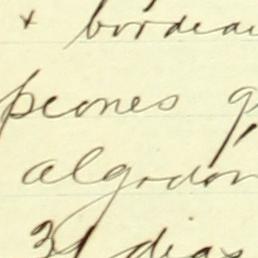 + bordea
peones q
algodón
31 dias